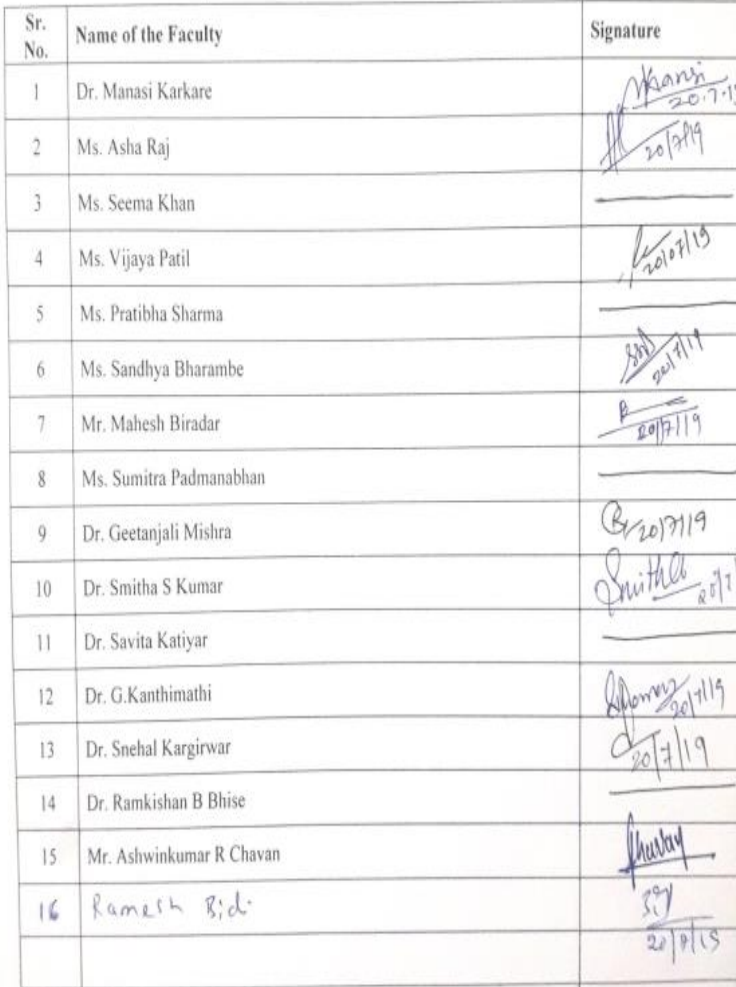 Sr. No. Name of the Faculty Signature
1 Dr. Manasi Karkare Mansi 20.7.19
2 Ms. Asha Raj 20/7/19
3 Ms. Seema Khan
4 Ms. Vijaya Patil 20/07/19
5 Ms. Pratibha Sharma
6 Ms. Sandhya Bharambe 20/7/19
7 Mr. Mahesh Biradar 20/7/19
8 Ms. Sumitra Padmanabhan
9 Dr. Geetanjali Mishra 20/7/19
10 Dr. Smitha S Kumar Smitha
11 Dr. Savita Katiyar
12 Dr. G.Kanthimathi 20/7/19
13 Dr. Snehal Kargirwar 20/7/19
14 Dr. Ramkishan B Bhise
15 Mr. Ashwinkumar R Chavan
16 Ramesh